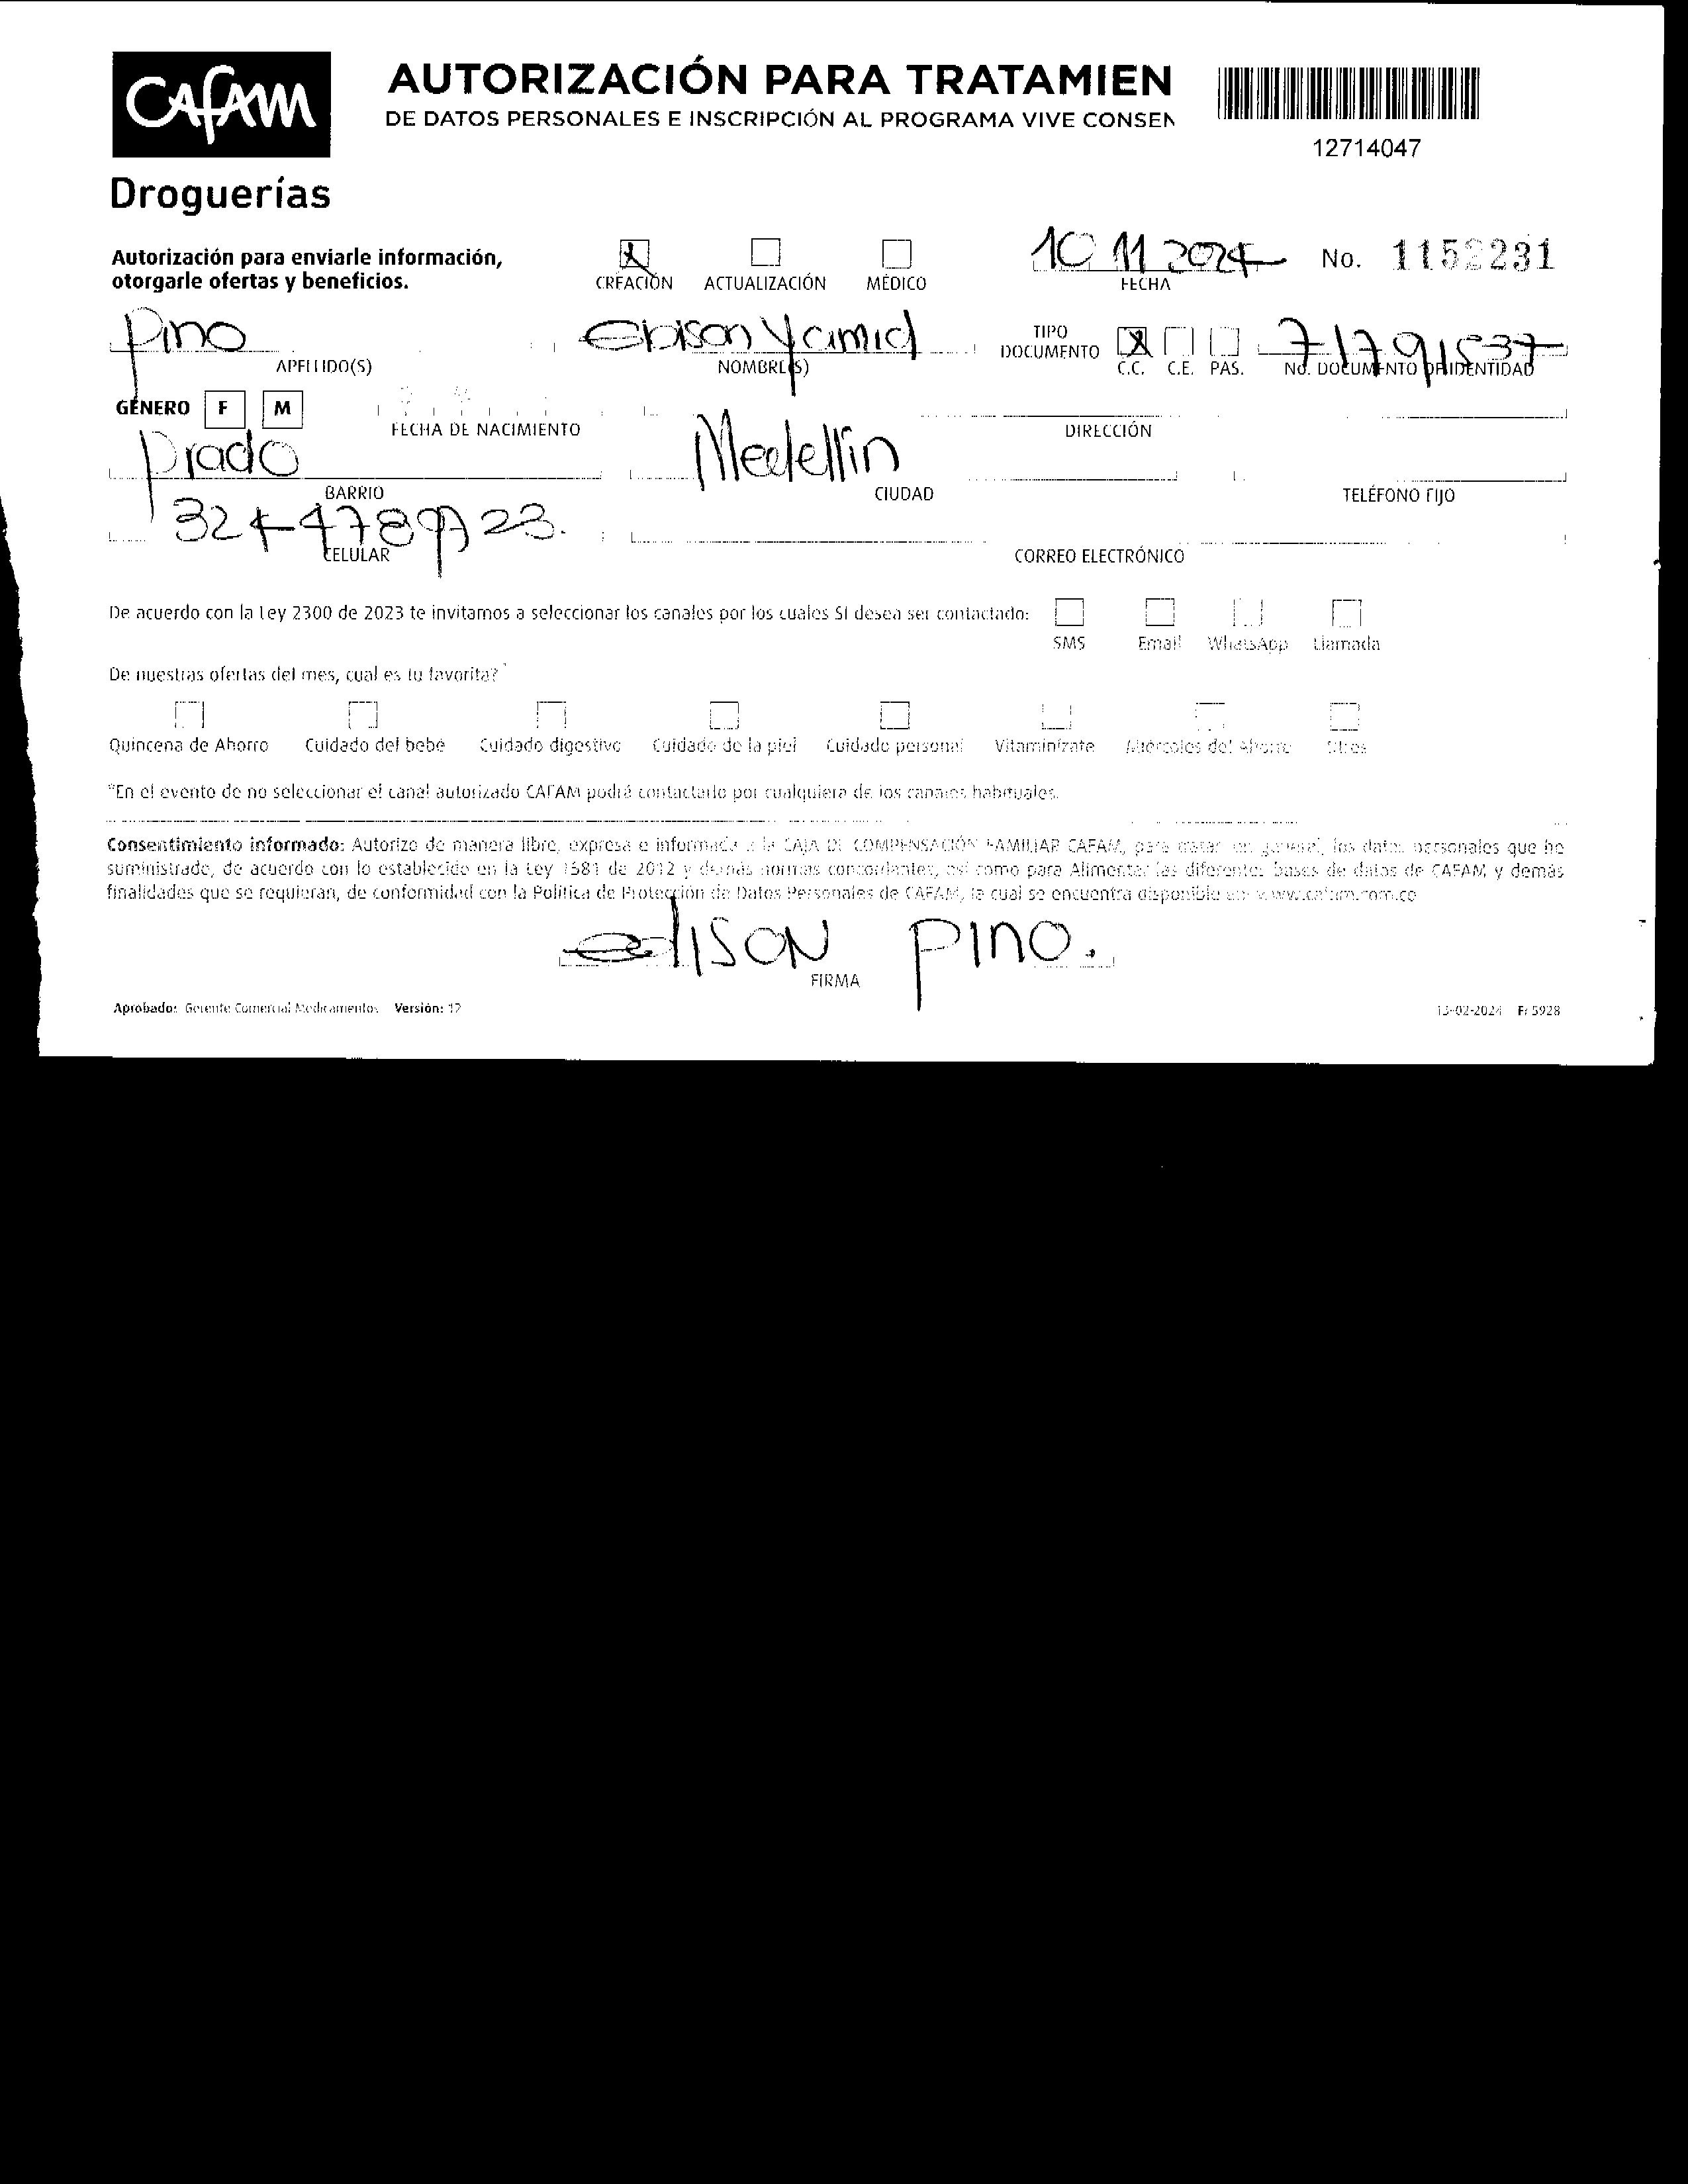 CAFAM
Droguerías
AUTORIZACIÓN PARA TRATAMIEN
DE DATOS PERSONALES E INSCRIPCIÓN AL PROGRAMA VIVE CONSEN
12714047
Autorización para enviarle información,
otorgarle ofertas y beneficios.
X CREACIÓN ACTUALIZACIÓN MÉDICO
10 11 2024 No. 1152231
FECHA
Pino Ebison Yamid TIPO DOCUMENTO X 71791537
APELLIDO(S) NOMBRE(S) C.C. C.E. PAS. No. DOCUMENTO DE IDENTIDAD
GÉNERO F M
FECHA DE NACIMIENTO DIRECCIÓN
Prado Medellin
BARRIO CIUDAD TELÉFONO FIJO
324 4789723.
CELULAR CORREO ELECTRÓNICO
De acuerdo con la Ley 2300 de 2023 te invitamos a seleccionar los canales por los cuales SI desea ser contactado:
SMS Email WhatsApp Llamada
De nuestras ofertas del mes, cual es tu favorita?*
Quincena de Ahorro Cuidado del bebé Cuidado digestivo Cuidado de la piel Cuidado personal Vitaminízate Miércoles del Ahorro Otros
*En el evento de no seleccionar el canal autorizado CAFAM podrá contactarlo por cualquiera de los canales habituales.
Consentimiento informado: Autorizo de manera libre, expresa e informada a la CAJA DE COMPENSACIÓN FAMILIAR CAFAM, para tratar en general, los datos personales que he
suministrado, de acuerdo con lo establecido en la Ley 1581 de 2012 y demás normas concordantes, así como para Alimentar las diferentes bases de datos de CAFAM y demás
finalidades que se requieran, de conformidad con la Política de Protección de Datos Personales de CAFAM, la cual se encuentra disponible en: www.cafam.com.co
edISON PINO.
FIRMA
Aprobado: Gerente Comercial Medicamentos Versión: 12
13-02-2024 F: 5928